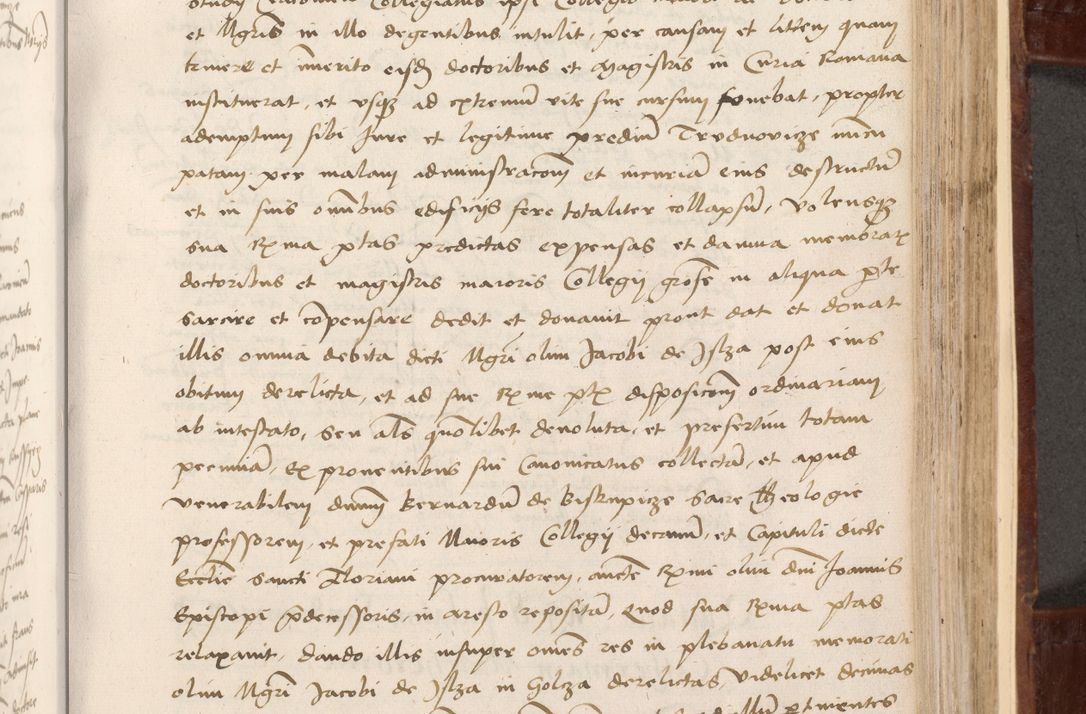 et Mgris in illo degentibus intulit, per causam et littem quam
temere et inmerito eisdem doctoribus et Magistris in Curia Romana
instituerat, et usque ad extremum vite sue cursum fovebat, propter
ademptum sibi Jure et legitime predium Trednovicze nuncu
patam per malam administracom et incuriam eius destructum
et in suis omnibus edificijs fere totaliter collapsum, Volensque
sua Rma ptas predictas expensas et damna memorat
doctoribus et magistris maioris Collegij in aliqua parte
sarcire et compensare dedit et donavit prout dat et donat
illis omnia debita dicti Mgri olim Jacobi de Jlza post eius
obitum derelicta, et ad sue Rme pt disposicom ordinariam
ab intestato, seu als quomolibet devoluta, et presertim totam
pecuniam, Ex proventibus sui Canonicatus collectam, et apud
venerabilem dnum Bernardum de Biskupicze Sacre theologie
professorem, et prefati Maioris Collegij decanum, et Capituli dicte
Ecclie sancti Floriani procuratorem, aucte Rmi olim dni Joannis
Episcopi predecessoris, in aresto repositam, Quod sua Rma ptas
relaxavit, dando illis insuper omnes res in plebanatu memorati
olim Mgri Jacobi de Jlza in Golcza derelictas, videlicet decimas